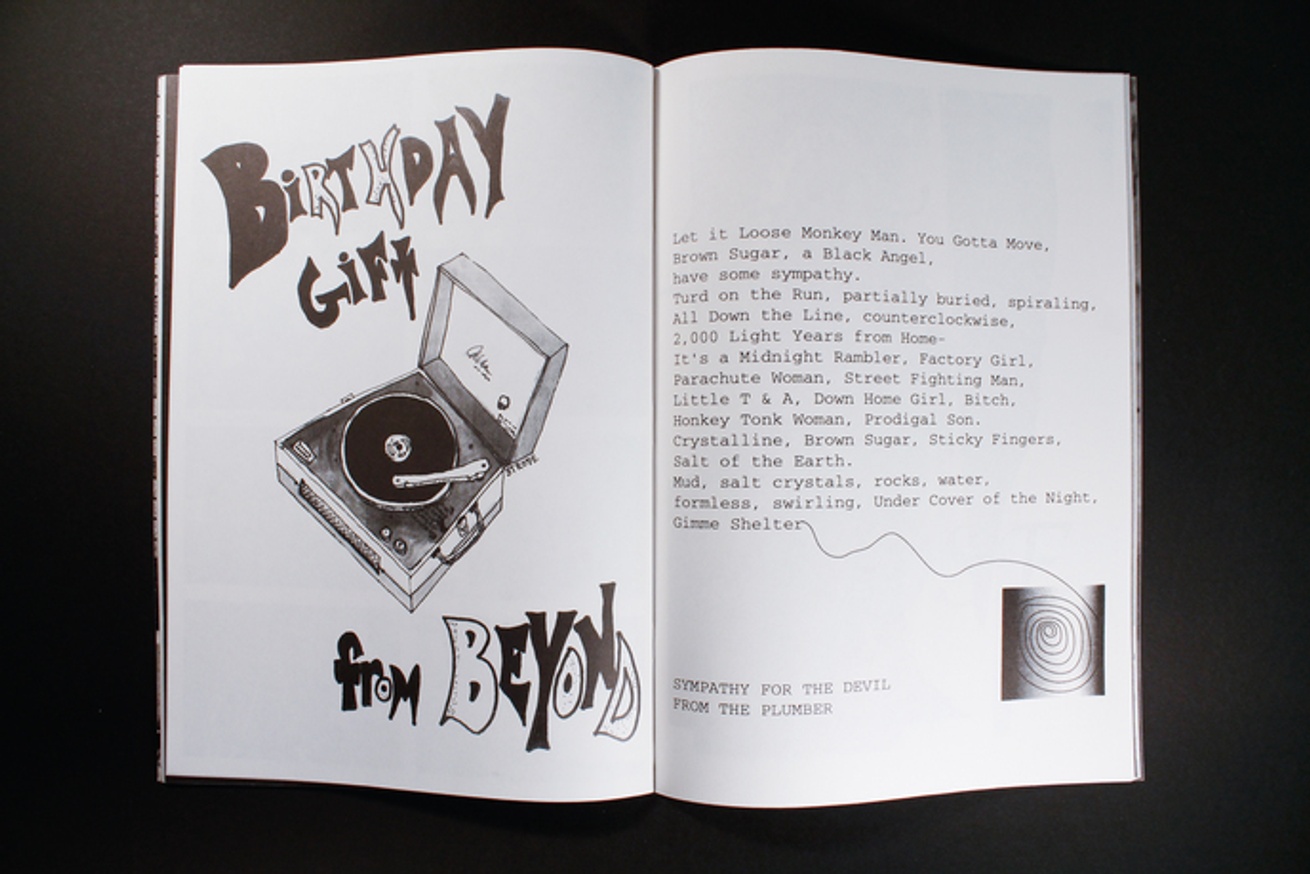 BiRTHDAY
GiFt
from BEYOND
Let it Loose Monkey Man. You Gotta Move,
Brown Sugar, a Black Angel,
have some sympathy.
Turd on the Run, partially buried, spiraling,
All Down the Line, counterclockwise,
2,000 Light Years from Home-
It's a Midnight Rambler, Factory Girl,
Parachute Woman, Street Fighting Man,
Little T & A, Down Home Girl, Bitch,
Honkey Tonk Woman, Prodigal Son.
Crystalline, Brown Sugar, Sticky Fingers,
Salt of the Earth.
Mud, salt crystals, rocks, water,
formless, swirling, Under Cover of the Night,
Gimme Shelter
SYMPATHY FOR THE DEVIL
FROM THE PLUMBER